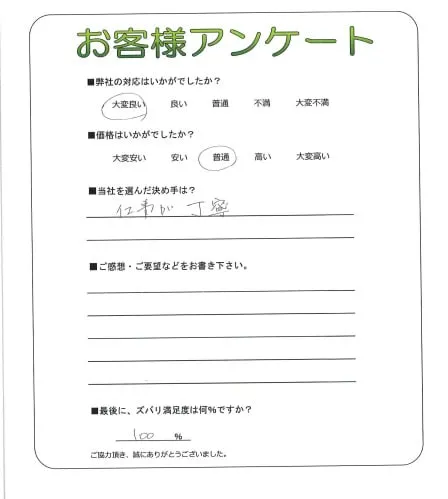 お客様アンケート
■弊社の対応はいかがでしたか?
大変良い 良い 普通 不満 大変不満
■価格はいかがでしたか?
大変安い 安い 普通 高い 大変高い
■当社を選んだ決め手は?
仕事が 丁寧
■ご感想・ご要望などをお書き下さい。
■最後に、ズバリ満足度は何%ですか?
100 %
ご協力頂き、誠にありがとうございました。